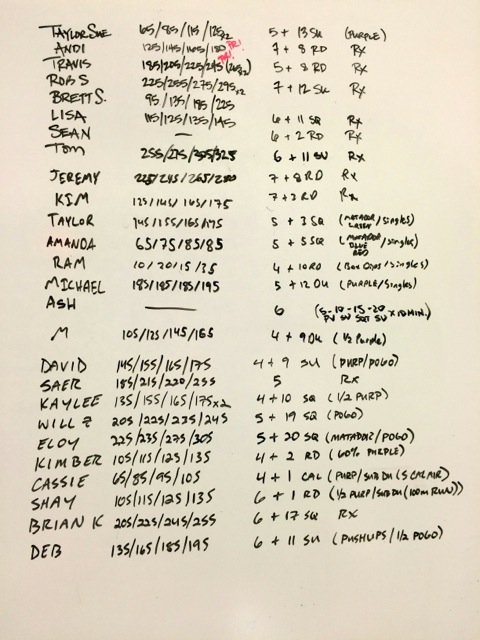 TAYLOR SUE 65/85/115/125x2 5 + 13 SU (PURPLE)
ANDI 125/145/165/180 PR! 7 + 8 RD Rx
TRAVIS 185/205/225/245 (265x2) PR! 5 + 8 RD Rx
ROB S 225/255/275/295x2 7 + 12 SU Rx
BRETT S. 95/135/185/225
LISA 115/125/135/145 6 + 11 SQ Rx
SEAN — 6 + 2 RD Rx
TOM 255/275/305/325 6 + 11 SU Rx
JEREMY 225/245/265/280 7 + 8 RD Rx
KIM 125/145/165/175 7 + 3 RD Rx
TAYLOR 145/155/165/175 5 + 3 SQ (MATADOR /SINGLES)
AMANDA 65/75/85/85 5 + 5 SQ (MATADOR BLUE RED /SINGLES)
RAM 10/20/15/35 4 + 10 RD (BOX DIPS/SINGLES)
MICHAEL 185/185/185/195 5 + 12 DU (PURPLE/SINGLES)
ASH — 6 (5-10-15-20 PU SU SQT SU x 10 MIN.)
M 105/125/145/165 4 + 9 DU (1/2 PURPLE)
DAVID 145/155/165/175 4 + 9 SU (PURP/POGO)
SAER 185/215/220/255 5 Rx
KAYLEE 135/155/165/175x2 4 + 10 SQ (1/2 PURP)
WILL Z 205/225/235/245 5 + 19 SQ (POGO)
ELOY 225/235/275/305 5 + 20 SQ (MATADOR/POGO)
KIMBER 105/115/125/135 4 + 2 RD (60% PURPLE)
CASSIE 65/85/95/105 4 + 1 CAL (PURP/SUB DU (5 CAL AIR)
SHAY 105/115/125/135 6 + 1 RD (1/2 PURP/SUB DU (100M RUN))
BRIAN K 205/225/245/255 6 + 17 SQ Rx
DEB 135/165/185/195 6 + 11 SU (PUSHUPS/1/2 POGO)